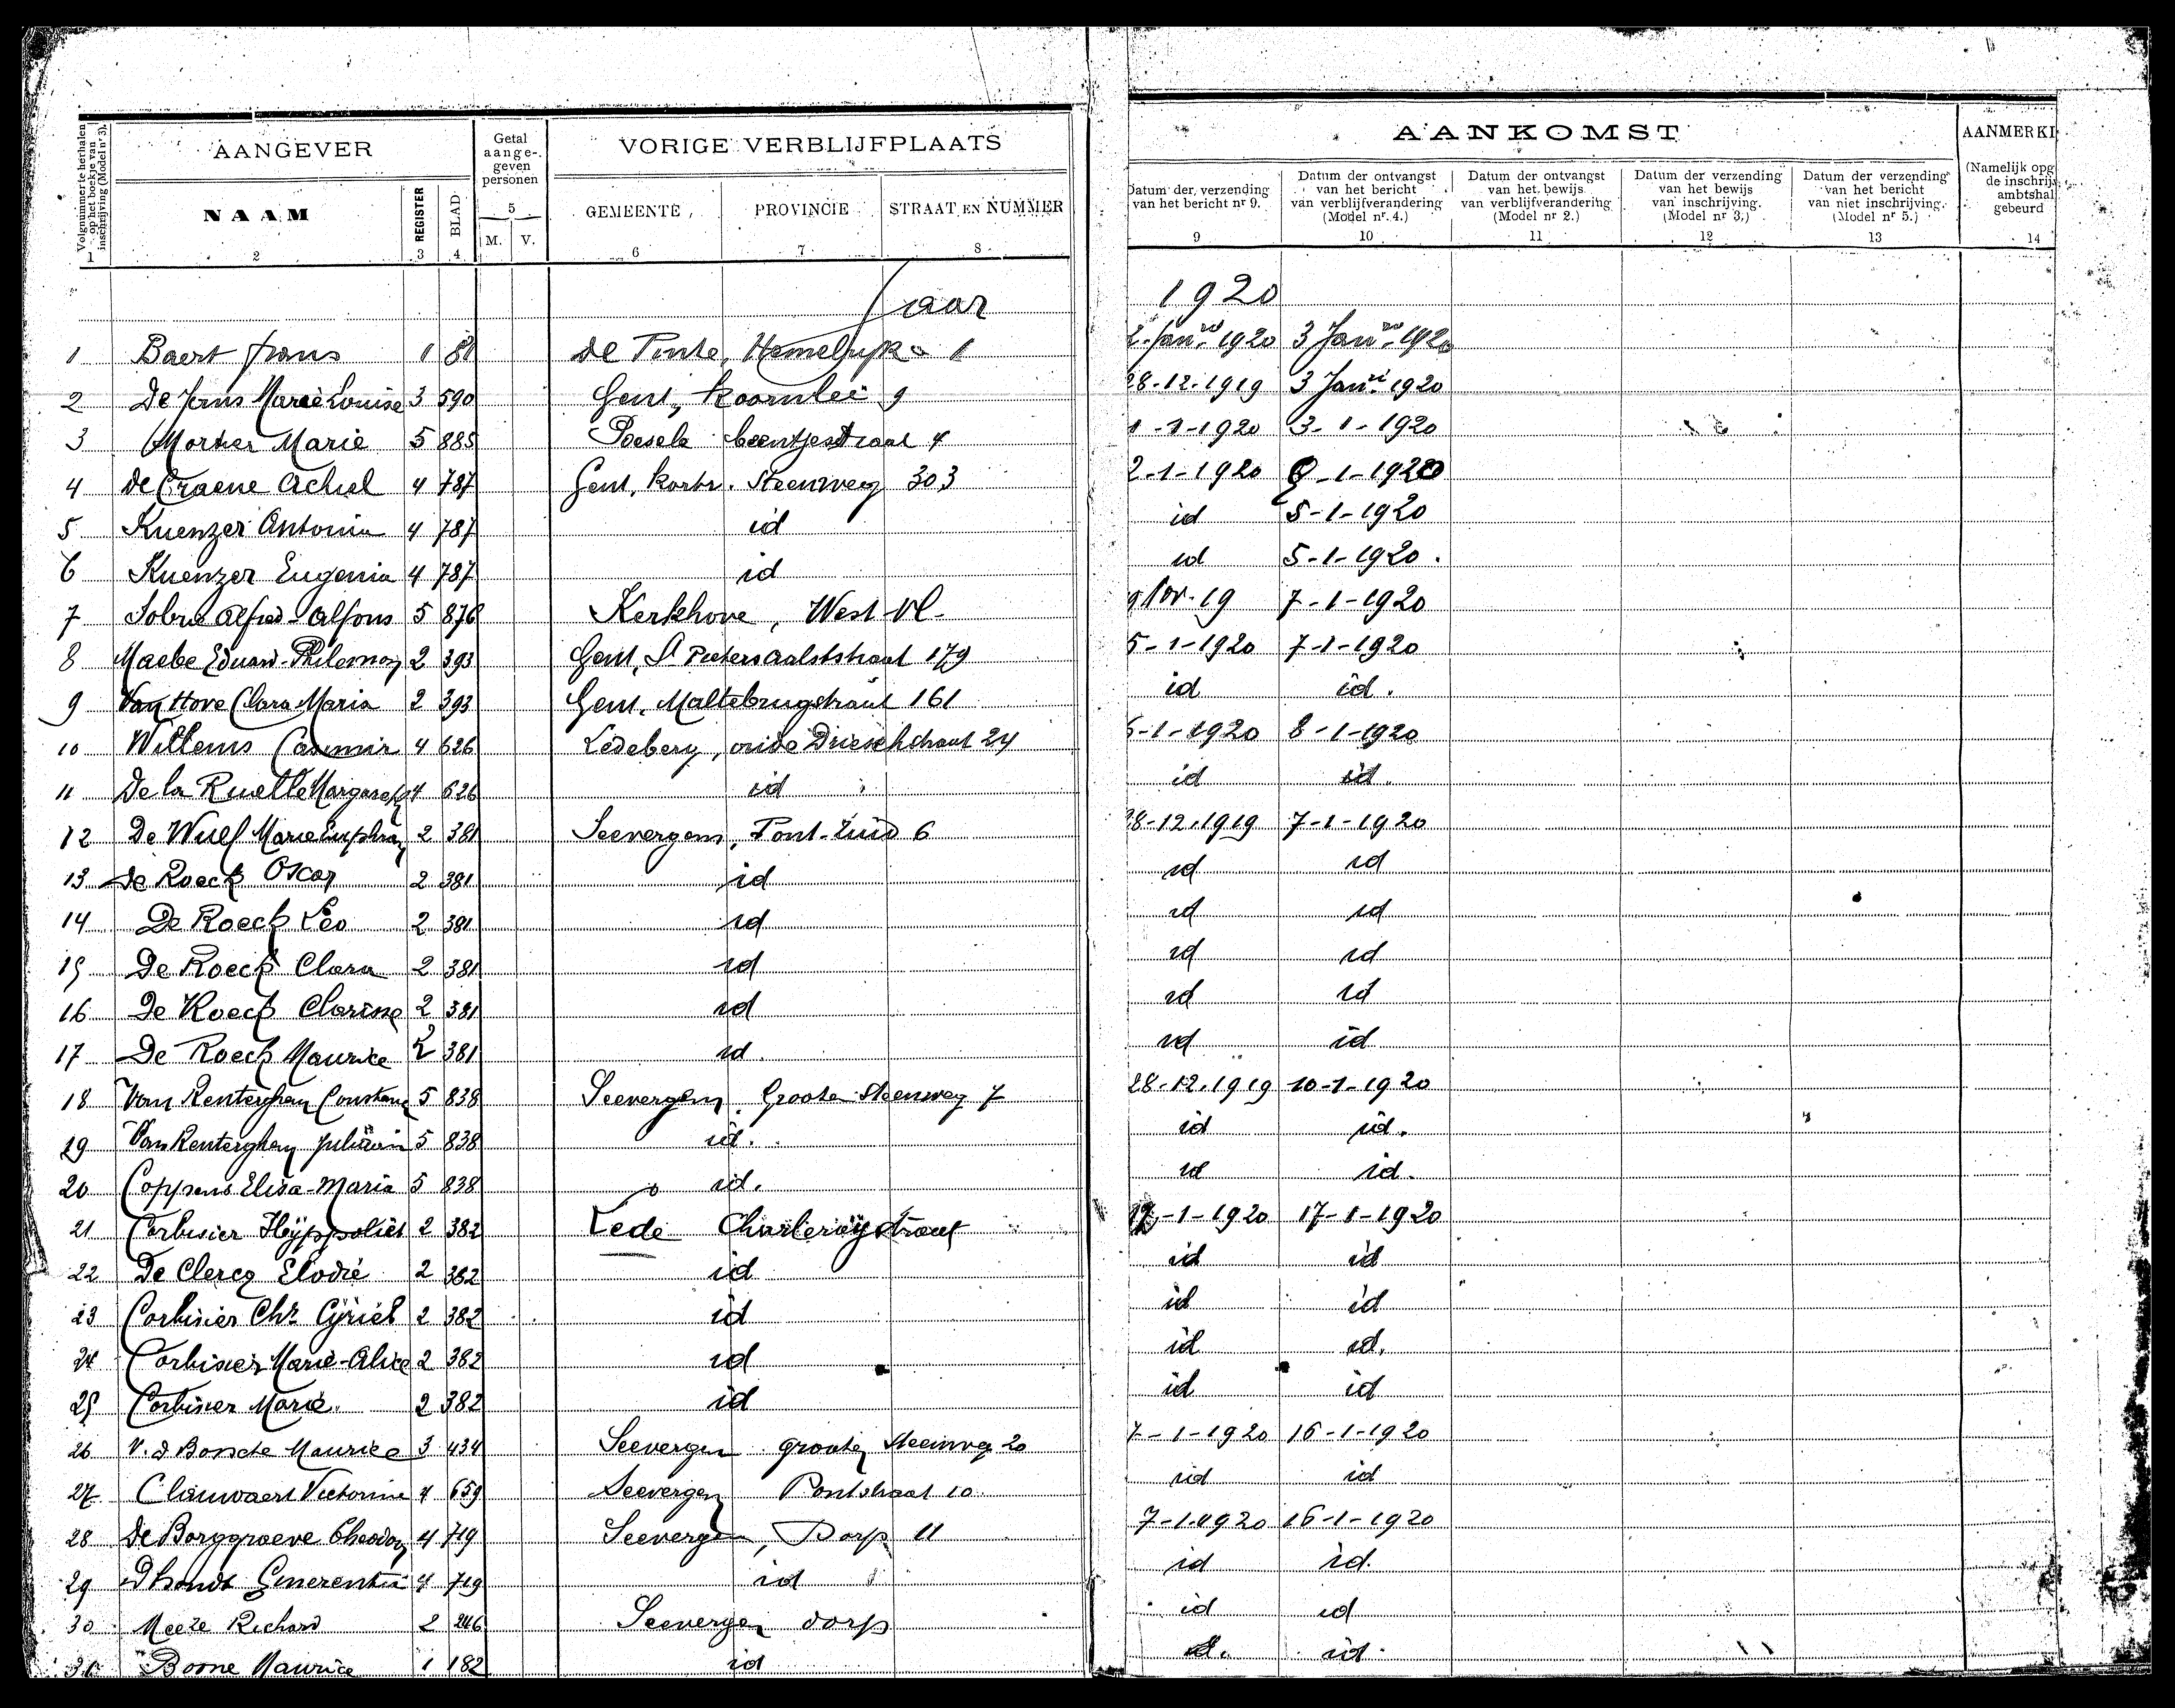 Volgnummer te herhalen op het boekje van inschrijving (Model nr 3).
AANGEVER
Getal aange-geven personen
VORIGE VERBLIJFPLAATS
AANKOMST
AANMERKI
NAAM
REGISTER
BLAD
5
M. V.
GEMEENTE
PROVINCIE
STRAAT EN NUMMER
Datum der verzending van het bericht nr 9.
Datum der ontvangst van het bericht van verblijfverandering (Model nr. 4.)
Datum der ontvangst van het bewijs van verblijfverandering (Model nr 2.)
Datum der verzending van het bewijs van inschrijving. (Model nr 3.)
Datum der verzending van het bericht van niet inschrijving. (Model nr 5.)
(Namelijk opg de inschrij ambtshal gebeurd
1 2 3 4 6 7 8 9 10 11 12 13 14
Jaar 1920
1 Baert frans 1 81 De Pinte, Hemelrijk 1 2 Jan 1920 3 Jan 1920
2 Marie Louise 3 590 Gent, Koornlei 9 28-12-1919 3 Jan 1920
3 Mortier Marie 5 885 Poesele 4 1-1-1920 3-1-1920
4 de Craene Achiel 4 787 Gent, Kortr. Steenweg 303 2-1-1920
5 Kuenzer Antonia 4 787 id id 5-1-1920
6 Kuenzer Eugenia 4 787 id id 5-1-1920.
7 Alfred-Alfons 5 876 Kerkhove, West-Vl- 9 Nov. 19 7-1-1920
8 Maebe Eduard-Philemon 2 393 Gent, St Pietersaalststraat 179 5-1-1920 7-1-1920
9 Van Hove Clara Maria 2 393 Gent, Maltebrugstraat 161 id id.
10 Willems Casimir 4 626 Ledeberg, oude Drieschstraat 24 6-1-1920 8-1-1920
11 De la Ruelle 4 626 id id id.
12 De Wulf Marie 2 381 Seevergem, Pont-Zuid 6 28-12-1919 7-1-1920
13 De Roeck Oscar 2 381 id id id
14 De Roeck Leo 2 381 id id id
15 De Roeck Clara 2 381 id id id
16 De Roeck Clarisse 2 381 id id id
17 De Roeck Maurice 2 381 id. id id
18 Van Renterghem 5 838 Seevergem, Groote Steenweg 7 28-12-1919 10-1-1920
29 Van Renterghem 5 838 id. id id.
20 Coppens Elisa-Maria 5 838 id. id id.
21 Corbisier Hyppoliet 2 382 Lede Charleroystraat -1-1920 17-1-1920
22 De Clercq Elodie 2 382 id id id
23 Corbisier Chr Cyriel 2 382 id id id
24 Corbisier Marie-Alice 2 382 id id id.
25 Corbisier Marie. 2 382 id id id
26 V. d Bossche Maurice 3 434 Seevergem groote Steenweg 20 7-1-1920 16-1-1920
27 Clauwaert Victorine 4 659 Seevergem Pontstraat 10 id id
28 De Borggraeve Theodoor 4 719 Seevergem, Dorp 11 7-1-1920 16-1-1920
29 Dhondt Emerentia 4 719 id id id.
30 Richard 2 246 Seevergem dorp id id
31 Boone Maurice 1 182 id id. id.